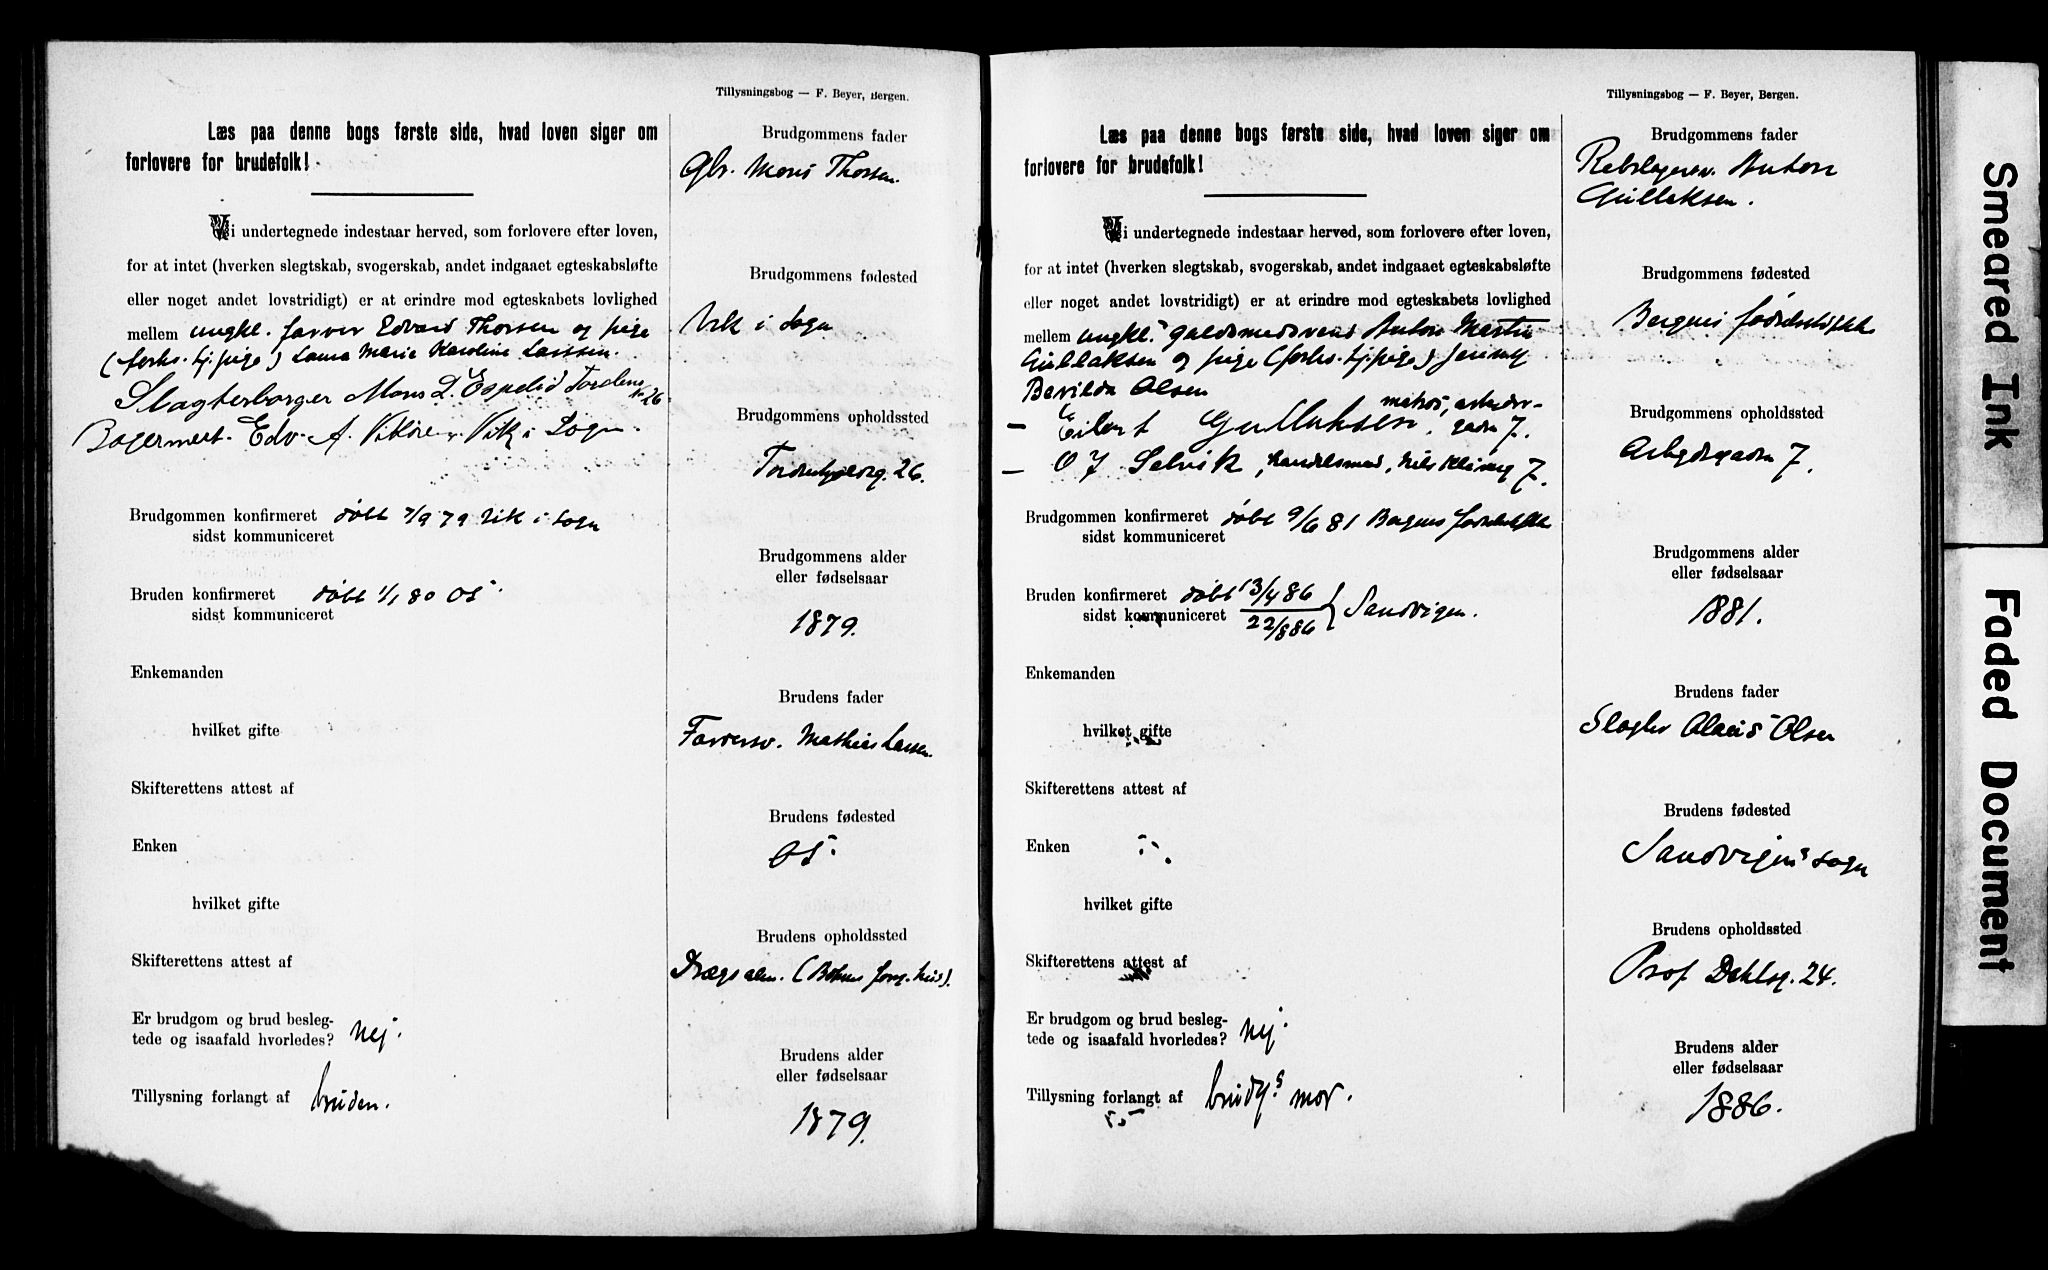 Tillysningsbog — F. Beyer, Bergen.
Læs paa denne bogs første side, hvad loven siger om
forlovere for brudefolk!
Vi undertegnede indestaar herved, som forlovere efter loven,
for at intet (hverken slegtskab, svogerskab, andet indgaaet egteskabsløfte
eller noget andet lovstridigt) er at erindre mod egteskabets lovlighed
mellem ungkl. farver Edvard Thorsen og pige
(forhv. tj.pige) Laura Marie Karoline Larssen.
Slagterborger Mons L. Espelid Tordensk. 26
Bagermest. Edv. A. Vikøren Vik i Sogn.
Brudgommen konfirmeret døbt 7/9 79 Vik i Sogn
sidst kommuniceret
Bruden konfirmeret døbt 1/1 80 Os.
sidst kommuniceret
Enkemanden
hvilket gifte
Skifterettens attest af
Enken
hvilket gifte
Skifterettens attest af
Er brudgom og brud besleg-
tede og isaafald hvorledes? Nej.
Tillysning forlangt af bruden.
Brudgommens fader
Gbr. Mons Thorsen.
Brudgommens fødested
Vik i Sogn
Brudgommens opholdssted
26.
Brudgommens alder
eller fødselsaar
1879.
Brudens fader
Farversv. Mathias Larsen.
Brudens fødested
Os.
Brudens opholdssted
Brudens alder
eller fødselsaar
1879.
Tillysningsbog — F. Beyer, Bergen.
Læs paa denne bogs første side, hvad loven siger om
forlovere for brudefolk!
Vi undertegnede indestaar herved, som forlovere efter loven,
for at intet (hverken slegtskab, svogerskab, andet indgaaet egteskabsløfte
eller noget andet lovstridigt) er at erindre mod egteskabets lovlighed
mellem ungkl. guldsmedsvend Anton Martin
Gullaksen og pige (forhv. tj.pige) Jenny
Berilda Olsen
— Eilert Gullaksen, matros, arbeder-
gaden 7.
— O J Selvik, handelsmand, Nils Klimsg 7.
Brudgommen konfirmeret døbt 9/6 81 Bergens
sidst kommuniceret
Bruden konfirmeret døbt 13/4 86
sidst kommuniceret 22/8 86 } Sandvigen.
Enkemanden
hvilket gifte
Skifterettens attest af
Enken
hvilket gifte
Skifterettens attest af
Er brudgom og brud besleg-
tede og isaafald hvorledes? Nej.
Tillysning forlangt af brudg.s mor.
Brudgommens fader
Rebslagersv. Anton
Gullaksen.
Brudgommens fødested
Bergens
Brudgommens opholdssted
7.
Brudgommens alder
eller fødselsaar
1881.
Brudens fader
Slagter Olaus Olsen
Brudens fødested
Sandvigens sogn
Brudens opholdssted
Prof Dahlsg. 24.
Brudens alder
eller fødselsaar
1886.
Smeared Ink
Faded Document